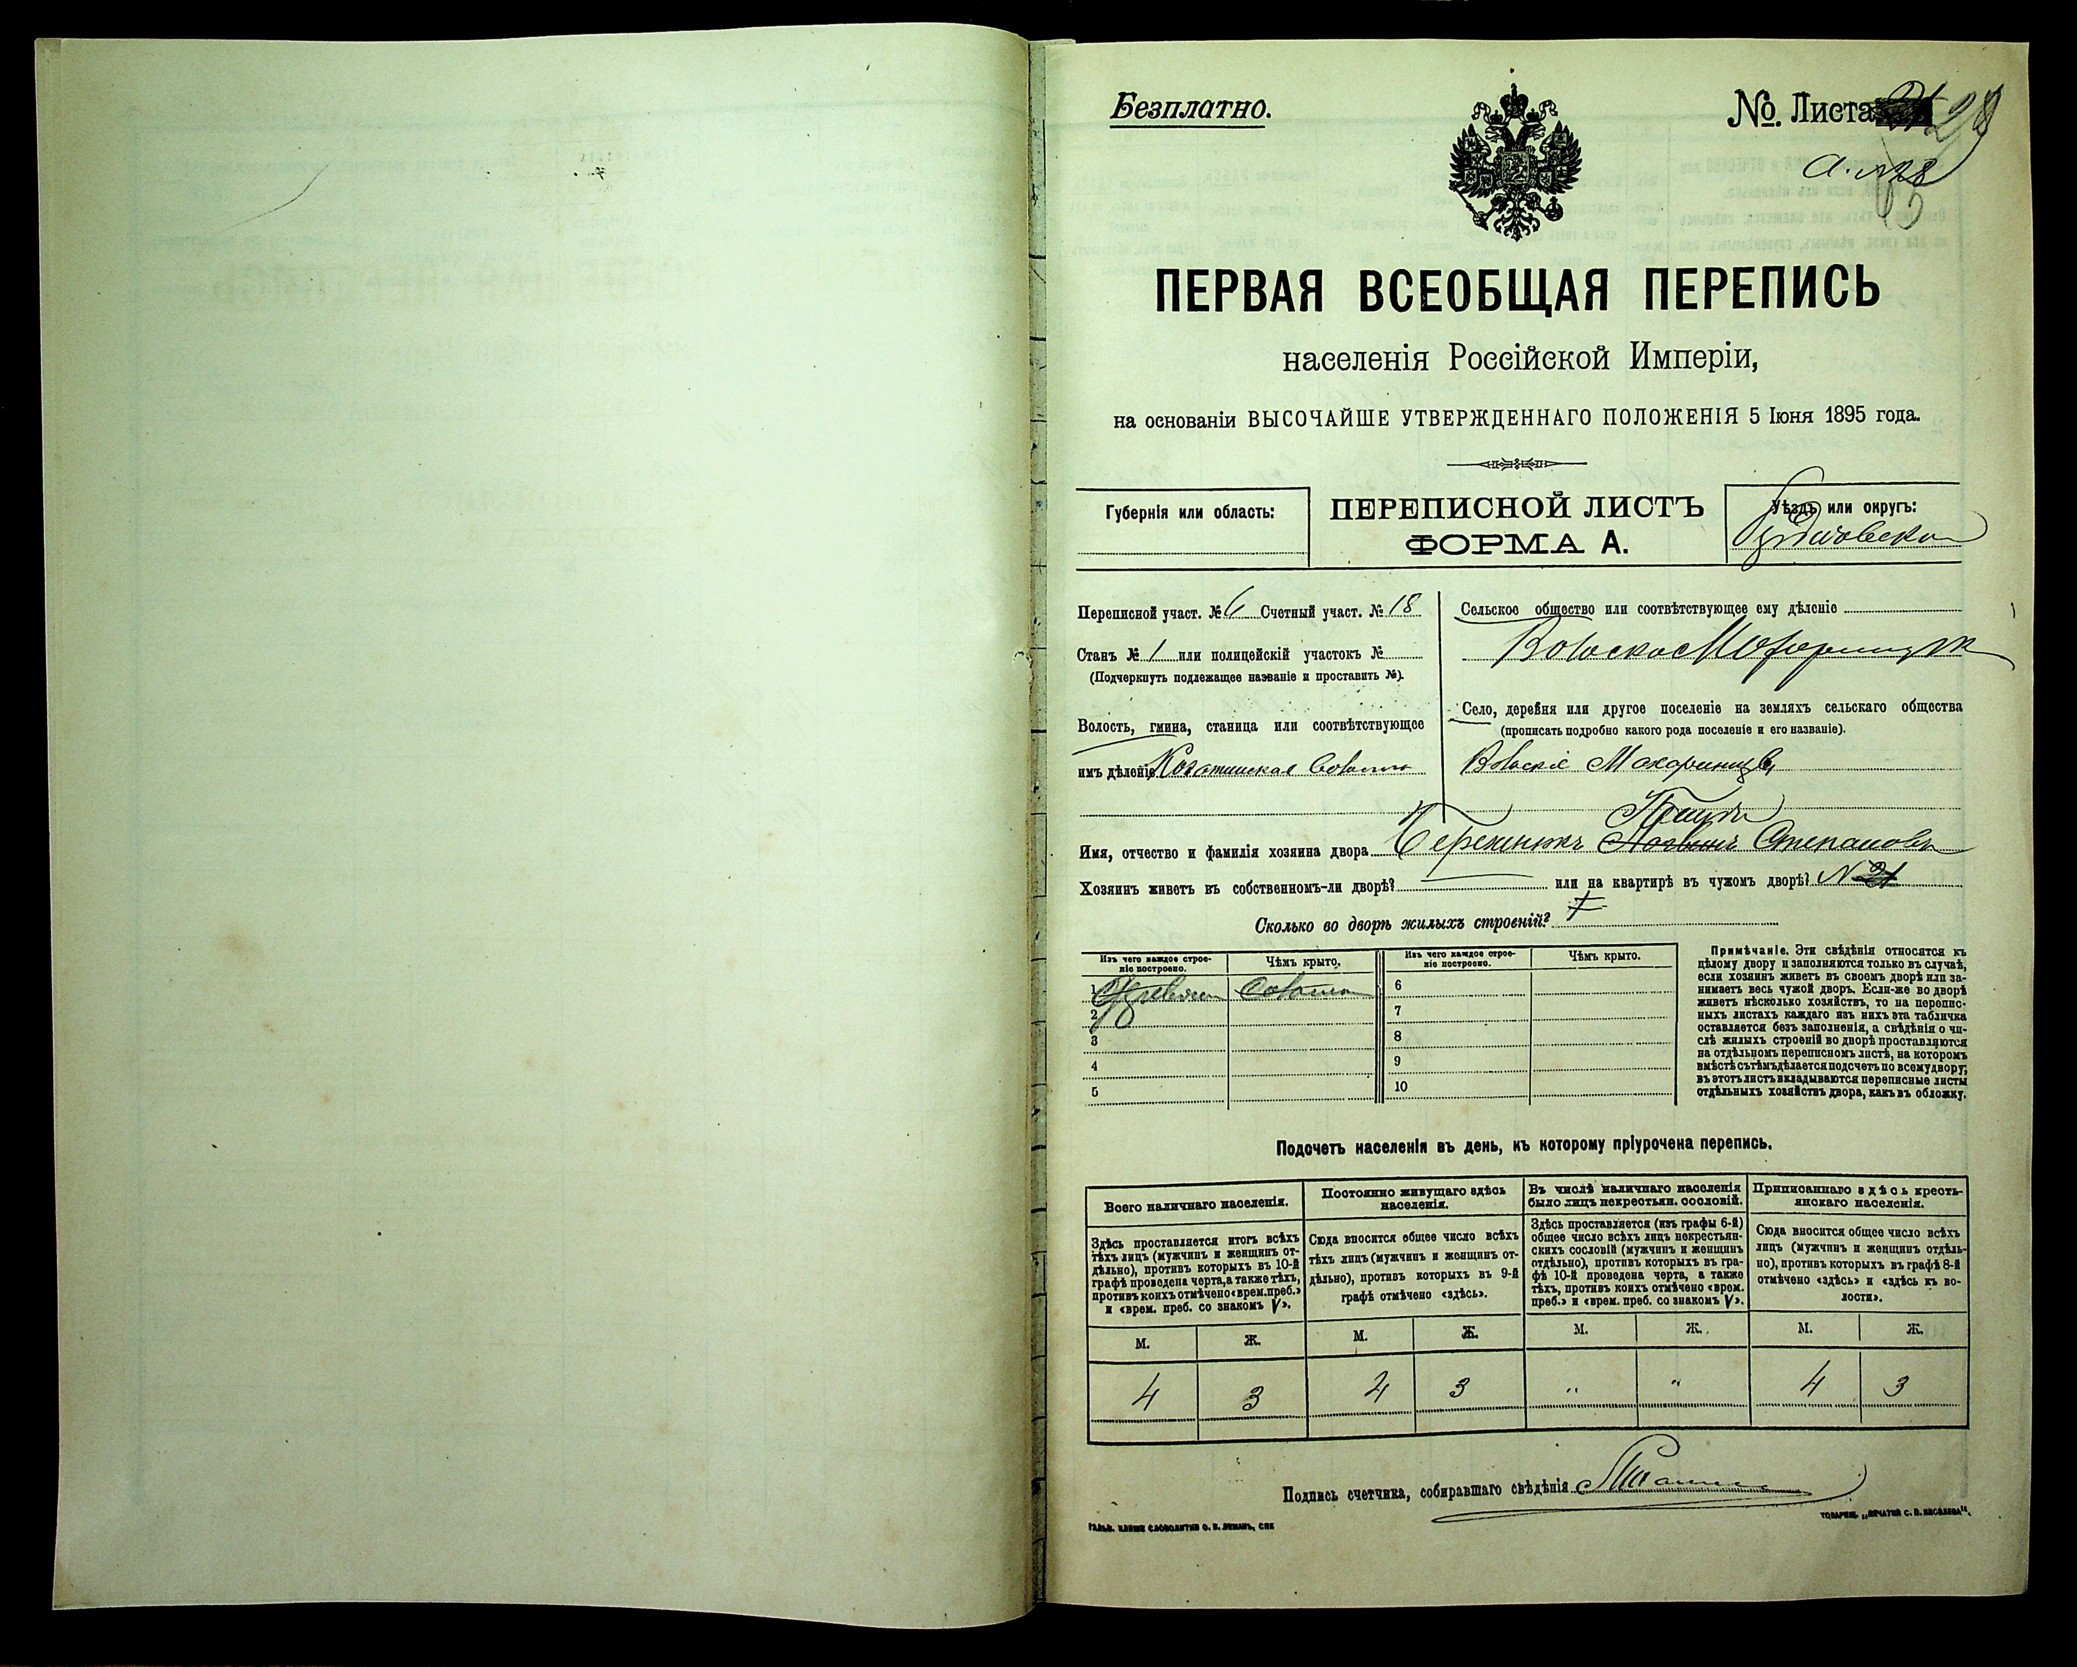 Безплатно.
№. Листа 28
А. №28
ПЕРВАЯ ВСЕОБЩАЯ ПЕРЕПИСЬ
населенія Россійской Имперіи,
на основаніи ВЫСОЧАЙШЕ УТВЕРЖДЕННАГО ПОЛОЖЕНІЯ 5 Іюня 1895 года.
Губернія или область:
ПЕРЕПИСНОЙ ЛИСТЪ
ФОРМА А.
Уѣздъ или округъ:
Переписной участ. № 6 Счетный участ. № 18
Станъ № 1 или полицейскій участокъ №
(Подчеркнуть подлежащее названіе и проставить №).
Волость, гмина, станица или соотвѣтствующее
имъ дѣленіе
Сельское общество или соотвѣтствующее ему дѣленіе
Село, деревня или другое поселеніе на земляхъ сельскаго общества
(прописать подробно какого рода поселеніе и его названіе).
Махаринцы
Имя, отчество и фамилія хозяина двора Степановъ
Хозяинъ живетъ въ собственномъ-ли дворѣ? или на квартирѣ въ чужомъ дворѣ? № 21
Сколько во дворѣ жилыхъ строеній?
Изъ чего каждое строе-
ніе построено.
Чѣмъ крыто.
Изъ чего каждое строе-
ніе построено.
Чѣмъ крыто.
1 солома 6
2 7
3 8
4 9
5 10
Примѣчаніе. Эти свѣдѣнія относятся къ
цѣлому двору и заполняются только въ случаѣ,
если хозяинъ живетъ въ своемъ дворѣ или за-
нимаетъ весь чужой дворъ. Если-же во дворѣ
живетъ нѣсколько хозяйствъ, то на перепис-
ныхъ листахъ каждаго изъ нихъ эта табличка
оставляется безъ заполненія, а свѣдѣнія о чи-
слѣ жилыхъ строеній во дворѣ проставляются
на отдѣльномъ переписномъ листѣ, на которомъ
вмѣстѣ съ тѣмъ дѣлается подсчетъ по всему двору;
въ этотъ листъ вкладываются переписные листы
отдѣльныхъ хозяйствъ двора, какъ въ обложку.
Подсчетъ населенія въ день, къ которому пріурочена перепись.
Всего наличнаго населенія.
Здѣсь проставляется итогъ всѣхъ
тѣхъ лицъ (мужчинъ и женщинъ от-
дѣльно), противъ которыхъ въ 10-й
графѣ проведена черта, а также тѣхъ,
противъ коихъ отмѣчено «врем. преб.»
и «врем. преб. со знакомъ V».
Постоянно живущаго здѣсь
населенія.
Сюда вносится общее число всѣхъ
тѣхъ лицъ (мужчинъ и женщинъ от-
дѣльно), противъ которыхъ въ 9-й
графѣ отмѣчено «здѣсь».
Въ числѣ наличнаго населенія
было лицъ некрестьян. сословій.
Здѣсь проставляется (изъ графы 6-й)
общее число всѣхъ лицъ некрестьян-
скихъ сословій (мужчинъ и женщинъ
отдѣльно), противъ которыхъ въ гра-
фѣ 10-й проведена черта, а также
тѣхъ, противъ коихъ отмѣчено «врем.
преб.» и «врем. преб. со знакомъ V».
Приписаннаго здѣсь кресть-
янскаго населенія.
Сюда вносится общее число всѣхъ
лицъ (мужчинъ и женщинъ отдѣль-
но), противъ которыхъ въ графѣ 8-й
отмѣчено «здѣсь» и «здѣсь къ во-
лости».
М. Ж. М. Ж. М. Ж. М. Ж.
4 3 4 3 " " 4 3
Подпись счетчика, собиравшаго свѣдѣнія
ГАЛЬВ. КЛИШЕ СЛОВОЛИТНИ О. И. ЛЕМАНЪ, СПБ
ТОВАРИЩ. „ПЕЧАТНЯ С. П. ЯКОВЛЕВА“.